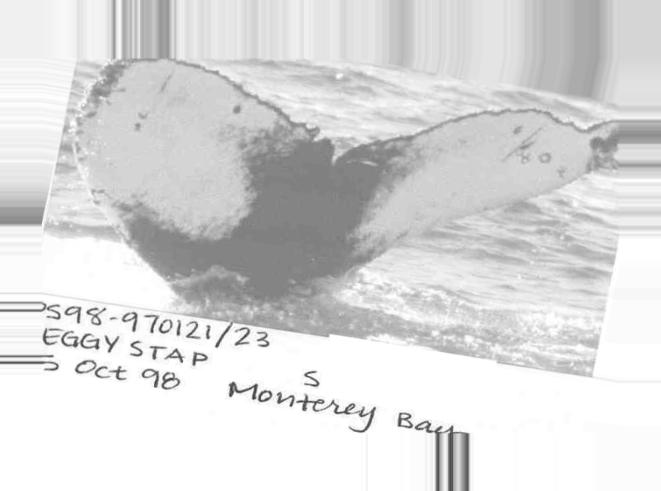 S98-970121/23
EGGY STAP
5 Oct 98 S Monterey Bay